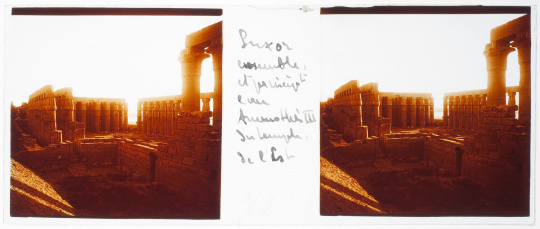 Luxor
ensemble,
et
cour
Amenothès III
du temple,
de l'Est